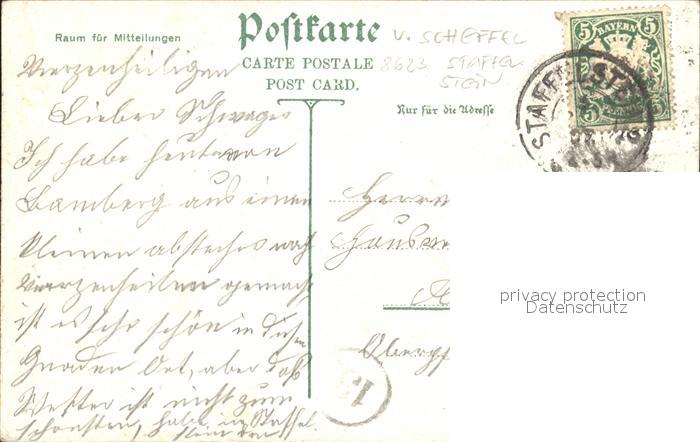 Raum für Mitteilungen
Postkarte
CARTE POSTALE
POST CARD.
V. SCHEFFEL
8623 STAFFEL
STEIN
Nur für die Adresse
5 BAYERN 5
STAFFELSTE
Vierzenheiligen
Lieber Schwager
Ich habe heute von
Bamberg aus einen
kleinen abstecher nach
Vierzenheilen gemacht
ist es sehr schön in diesem
Gnaden Ort, aber das
Wetter ist nicht zum
schönsten, habe in Staffel
Herrn
Hausm
Oberpf
privacy protection
Datenschutz